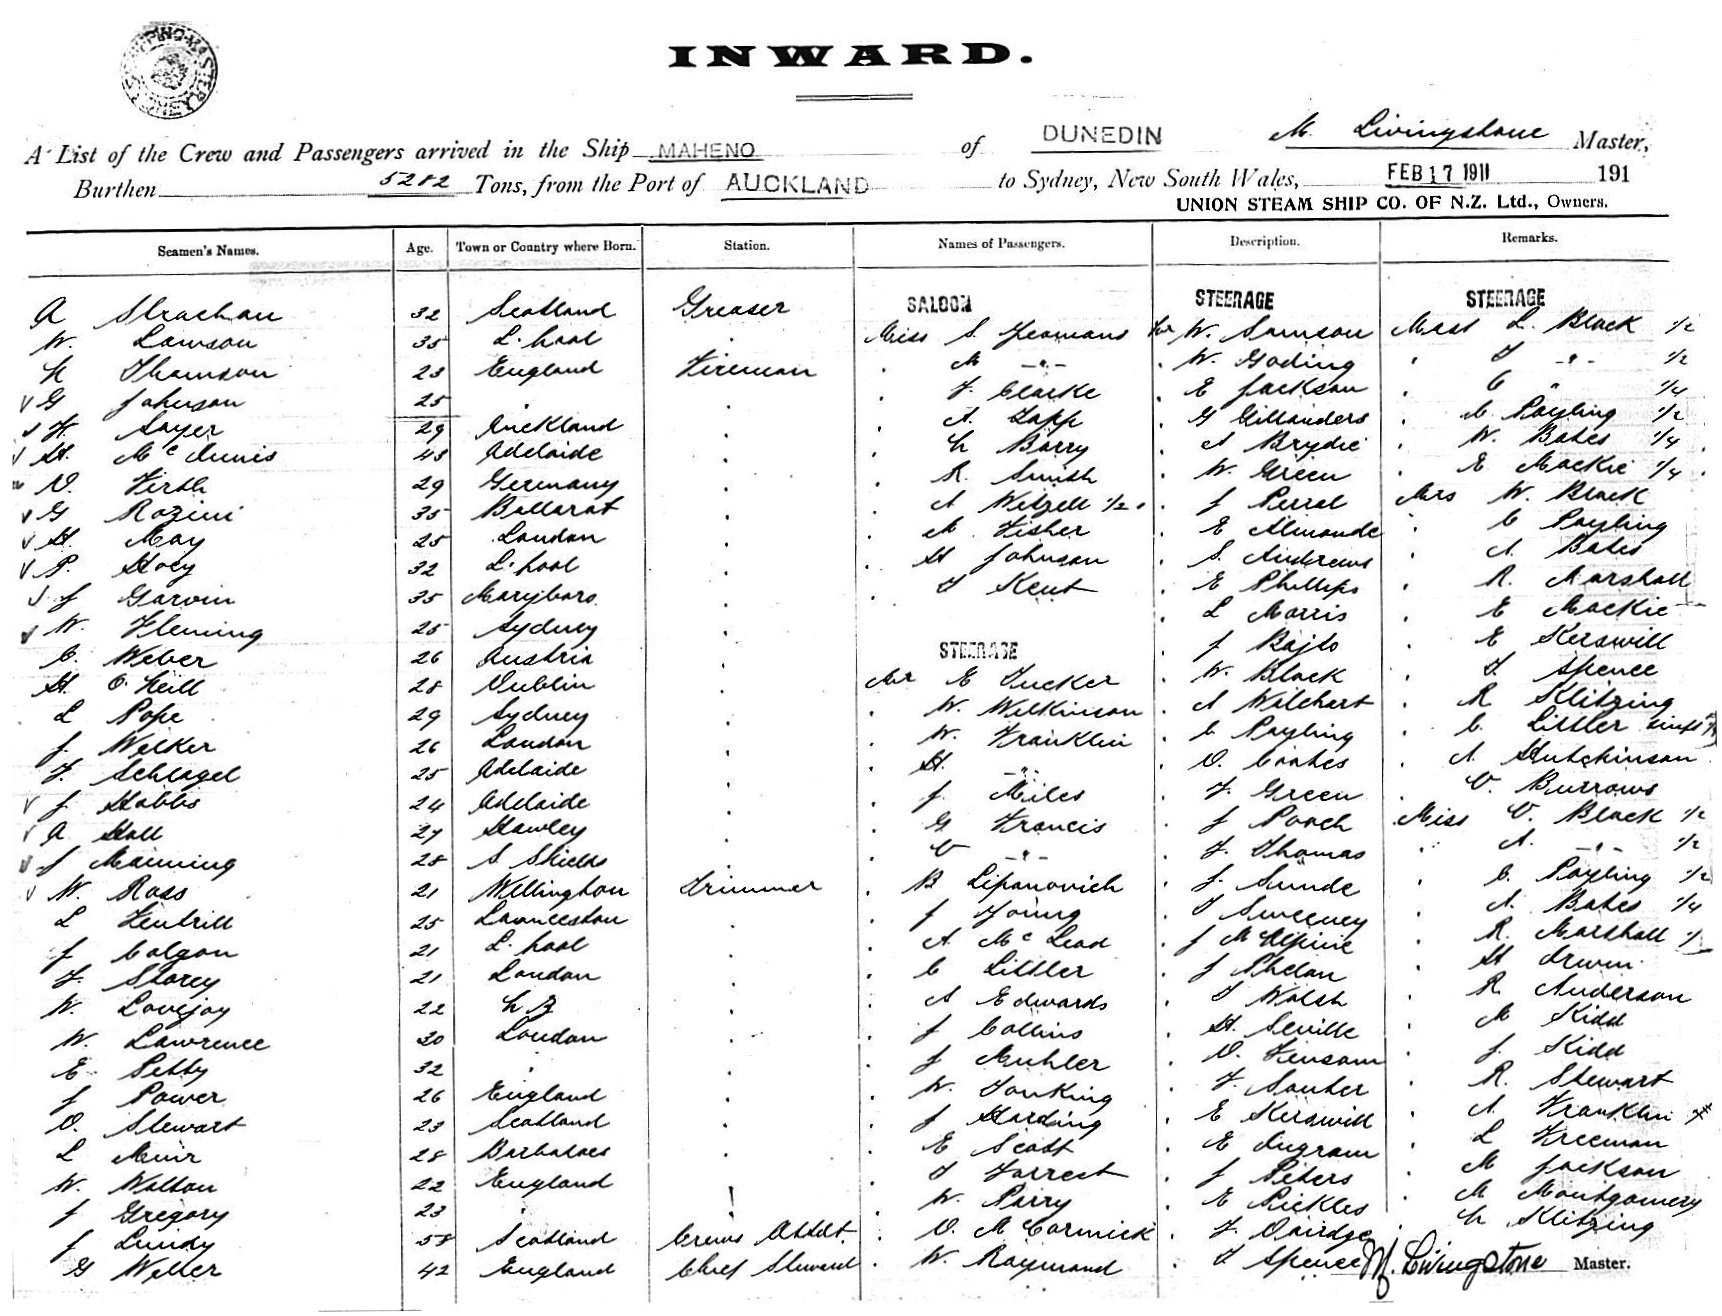 INWARD.
A List of the Crew and Passengers arrived in the Ship MAHENO of DUNEDIN M. Livingstone Master,
Burthen 5282 Tons, from the Port of AUCKLAND to Sydney, New South Wales, FEB 17 1911 191
UNION STEAM SHIP CO. OF N.Z. Ltd., Owners.
Seamen's Names. Age. Town or Country where Born. Station. Names of Passengers. Description. Remarks.
SALOON STEERAGE STEERAGE
A Strachan 32 Scotland Greaser Miss S Yeomans Mr W. Samson Mast L. Black 1/2
W. Lawson 35 L. pool . . M -"- . W. Goding . T -"- 1/2
N Thomson 23 England Fireman . F Clarke . E Jackson . C " 1/4
G Johnson 25 . . . A. Tapp . G Gillanders . C Payling 1/2
H Sayer 29 Auckland . . N Barry . A Brydie . W. Bates 1/4
H. McInnis 43 Adelaide . . R. Smith . W. Green . E Mackie 1/4
V. Firth 29 Germany . . A Witzell 1/2 . J Perral Mrs W. Black
G Rozini 35 Ballarat . . M Fisher . E Almande . C Payling
H. May 25 London . . H Johnson . S. Andrews . A. Bates
P. Hoey 32 L. pool . . T Kent . E Phillips . R. Marshall
J Garvin 35 Maryboro . L Morris . E Mackie
W. Fleming 25 Sydney . STEERAGE . J Bajlo . E Kerswill
C. Weber 26 Austria . Mr E Tucker . W. Black . T. Spence
H. O'Neill 28 Dublin . . W. Wilkinson . A Wilchart . R Klitzing
L Pope 29 Sydney . . W. Franklin . C Payling . C. Littler
J Walker 26 London . . H. -"- . O. Coates . A Hutchinson
F. Schlagel 25 Adelaide . . J. Miles . F Green . V. Burrows
J Hobbs 24 Adelaide . . G Francis . J Poach Miss V. Black 1/2
A Hall 27 Hawley . . V -"- . F. Thomas . A. -"- 1/2
J Manning 28 S Shields . . B Lipanovich . J. Sunde . C. Payling 1/2
W. Ross 21 Wellington Trimmer . J Young . T Sweeney . A. Bates 1/4
L Fentrill 25 Launceston . . A. McLeod . J McAlpine . R. Marshall
J Colgan 21 L. pool . . C Littler . J Phelan . H Irwin
F Storey 21 London . . A Edwards . T Walsh . R. Anderson
W. Lovejoy 22 N Z . . J Collins . H. Seville . M Kidd
W. Lawrence 30 London . . J Muhler . O. Fensom . J. Kidd
E. Petty 32 . . . W. Tonking . F Souter . R. Stewart
J Power 26 England . . J Harding . E Kerswill . A. Franklin
O. Stewart 23 Scotland . . E Scott . E Ingram . L Freeman
L Muir 28 Barbadoes . . T Forrest . J Peters . M Jackson
W. Walton 22 England . . W. Parry . E Pickles . M Montgomery
J Gregory 23 . . . O. McCormick . F Oairdge . N Klitzing
J Lundy 58 Scotland Crews Attdt. . W. Raymond . T Spence M. Livingstone Master.
G Weller 42 England Chief Steward